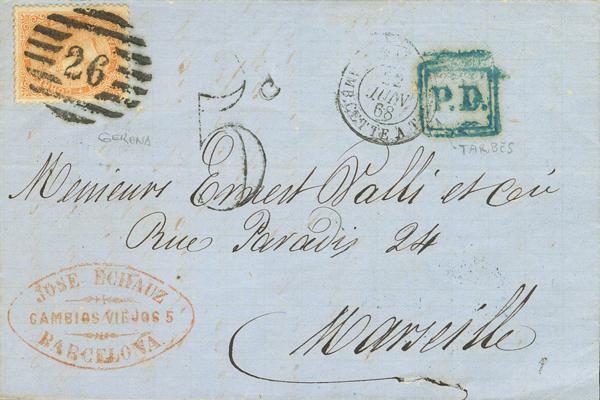 26
5c
22
JUIN
68
P.D.
GERONA
TARBES
Messieurs Ernest Valli et Cie
Rue Paradis 24
Marseille
JOSE ECHAUZ
CAMBIOS VIEJOS 5
BARCELONA